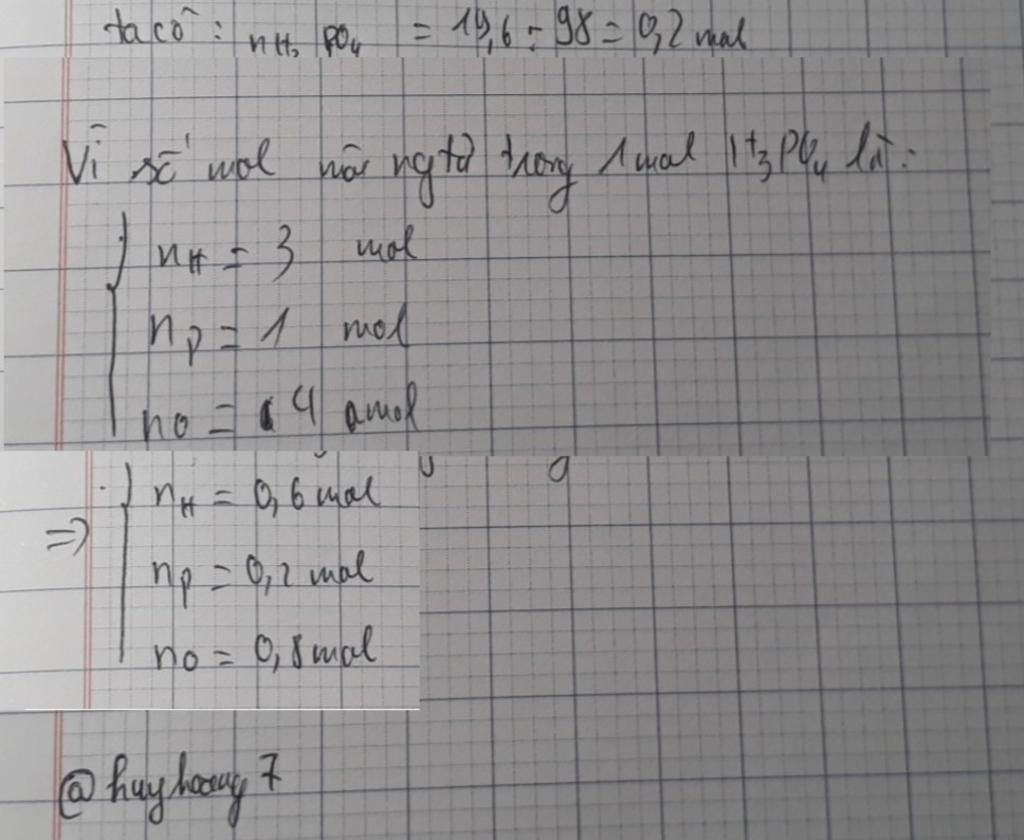 ta có: nH3PO4 = 19,6 ÷ 98 = 0,2 mol
Vì số mol mỗi ngtử trong 1 mol H3PO4 là:
nH = 3 mol
nP = 1 mol
nO = 4 mol
=> nH = 0,6 mol
nP = 0,2 mol
nO = 0,8 mol
@huyhoang7